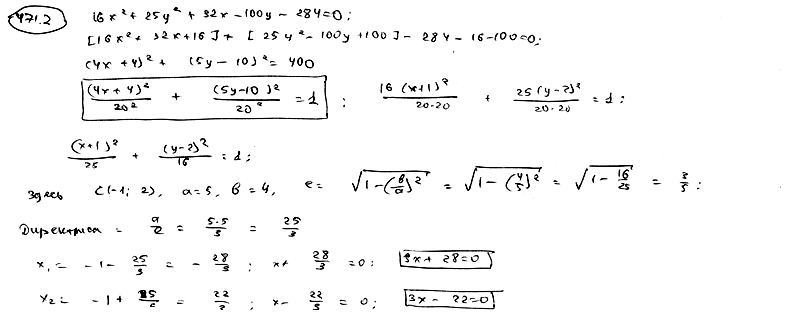 471.2 16x² + 25y² + 32x - 100y - 284 = 0;
[16x² + 32x + 16] + [25y² - 100y + 100] - 284 - 16 - 100 = 0;
(4x + 4)² + (5y - 10)² = 400
(4x + 4)²/20² + (5y - 10)²/20² = 1 ; 16(x+1)²/20·20 + 25(y-2)²/20·20 = 1;
(x+1)²/25 + (y-2)²/16 = 1;
Здесь C(-1; 2), a=5, b=4, e = √(1-(b/a)²) = √(1-(4/5)²) = √(1-16/25) = 3/5;
Директриса = a/e = 5·5/3 = 25/3
x₁ = -1 - 25/3 = -28/3 ; x + 28/3 = 0; 3x + 28 = 0
x₂ = -1 + 25/3 = 22/3 ; x - 22/3 = 0; 3x - 22 = 0